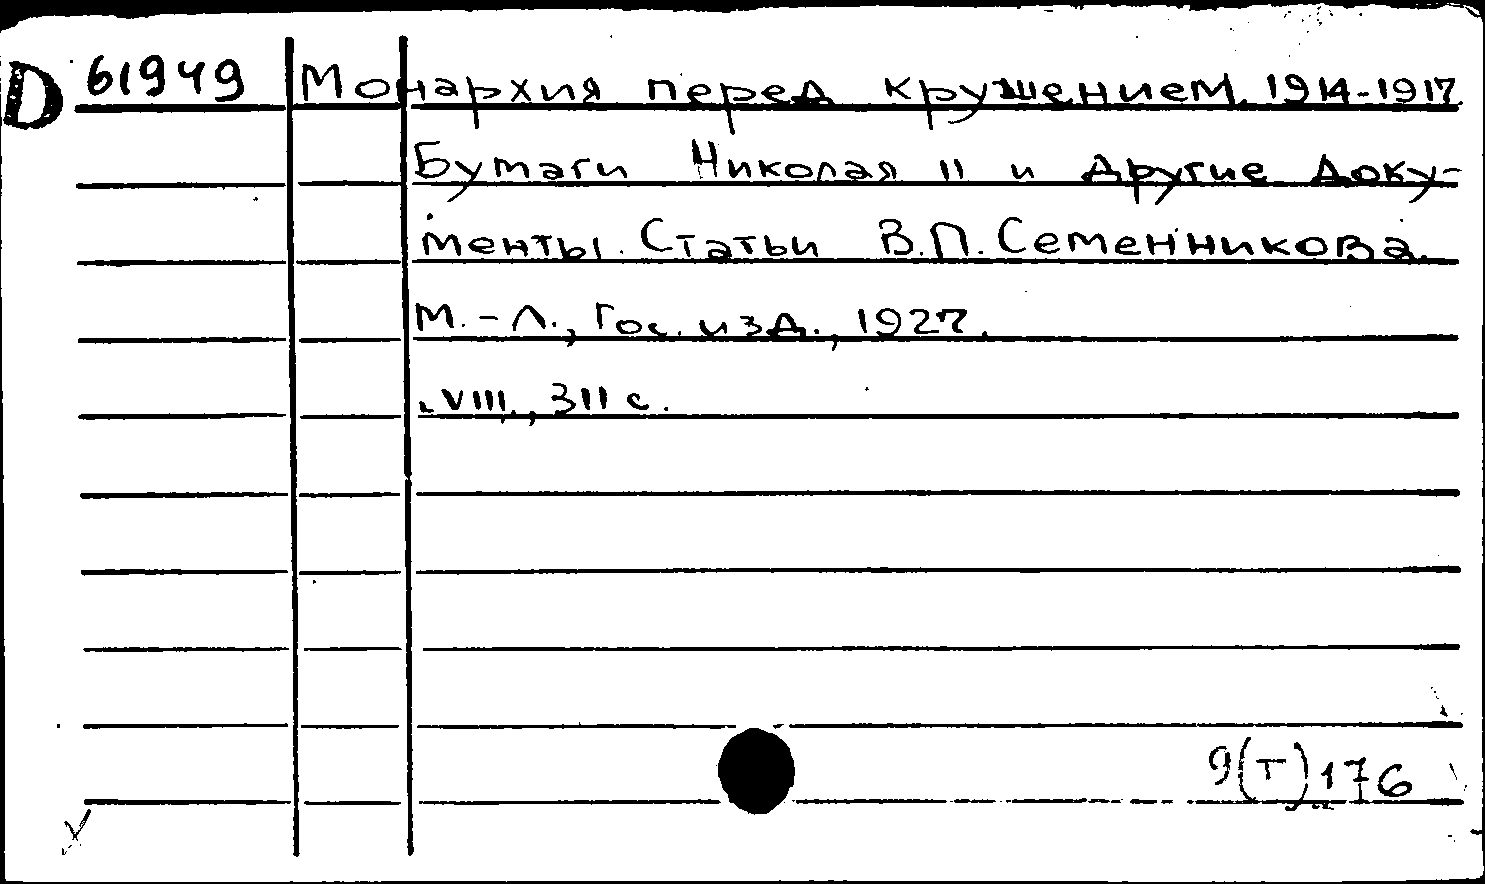 D 61949 Монархия перед крушением. 1914-1917.
Бумаги Николая II и другие доку-
менты. Статьи В.П. Семенникова.
М.-Л., Гос. изд., 1927.
VIII, 311 с.
9(Т)176